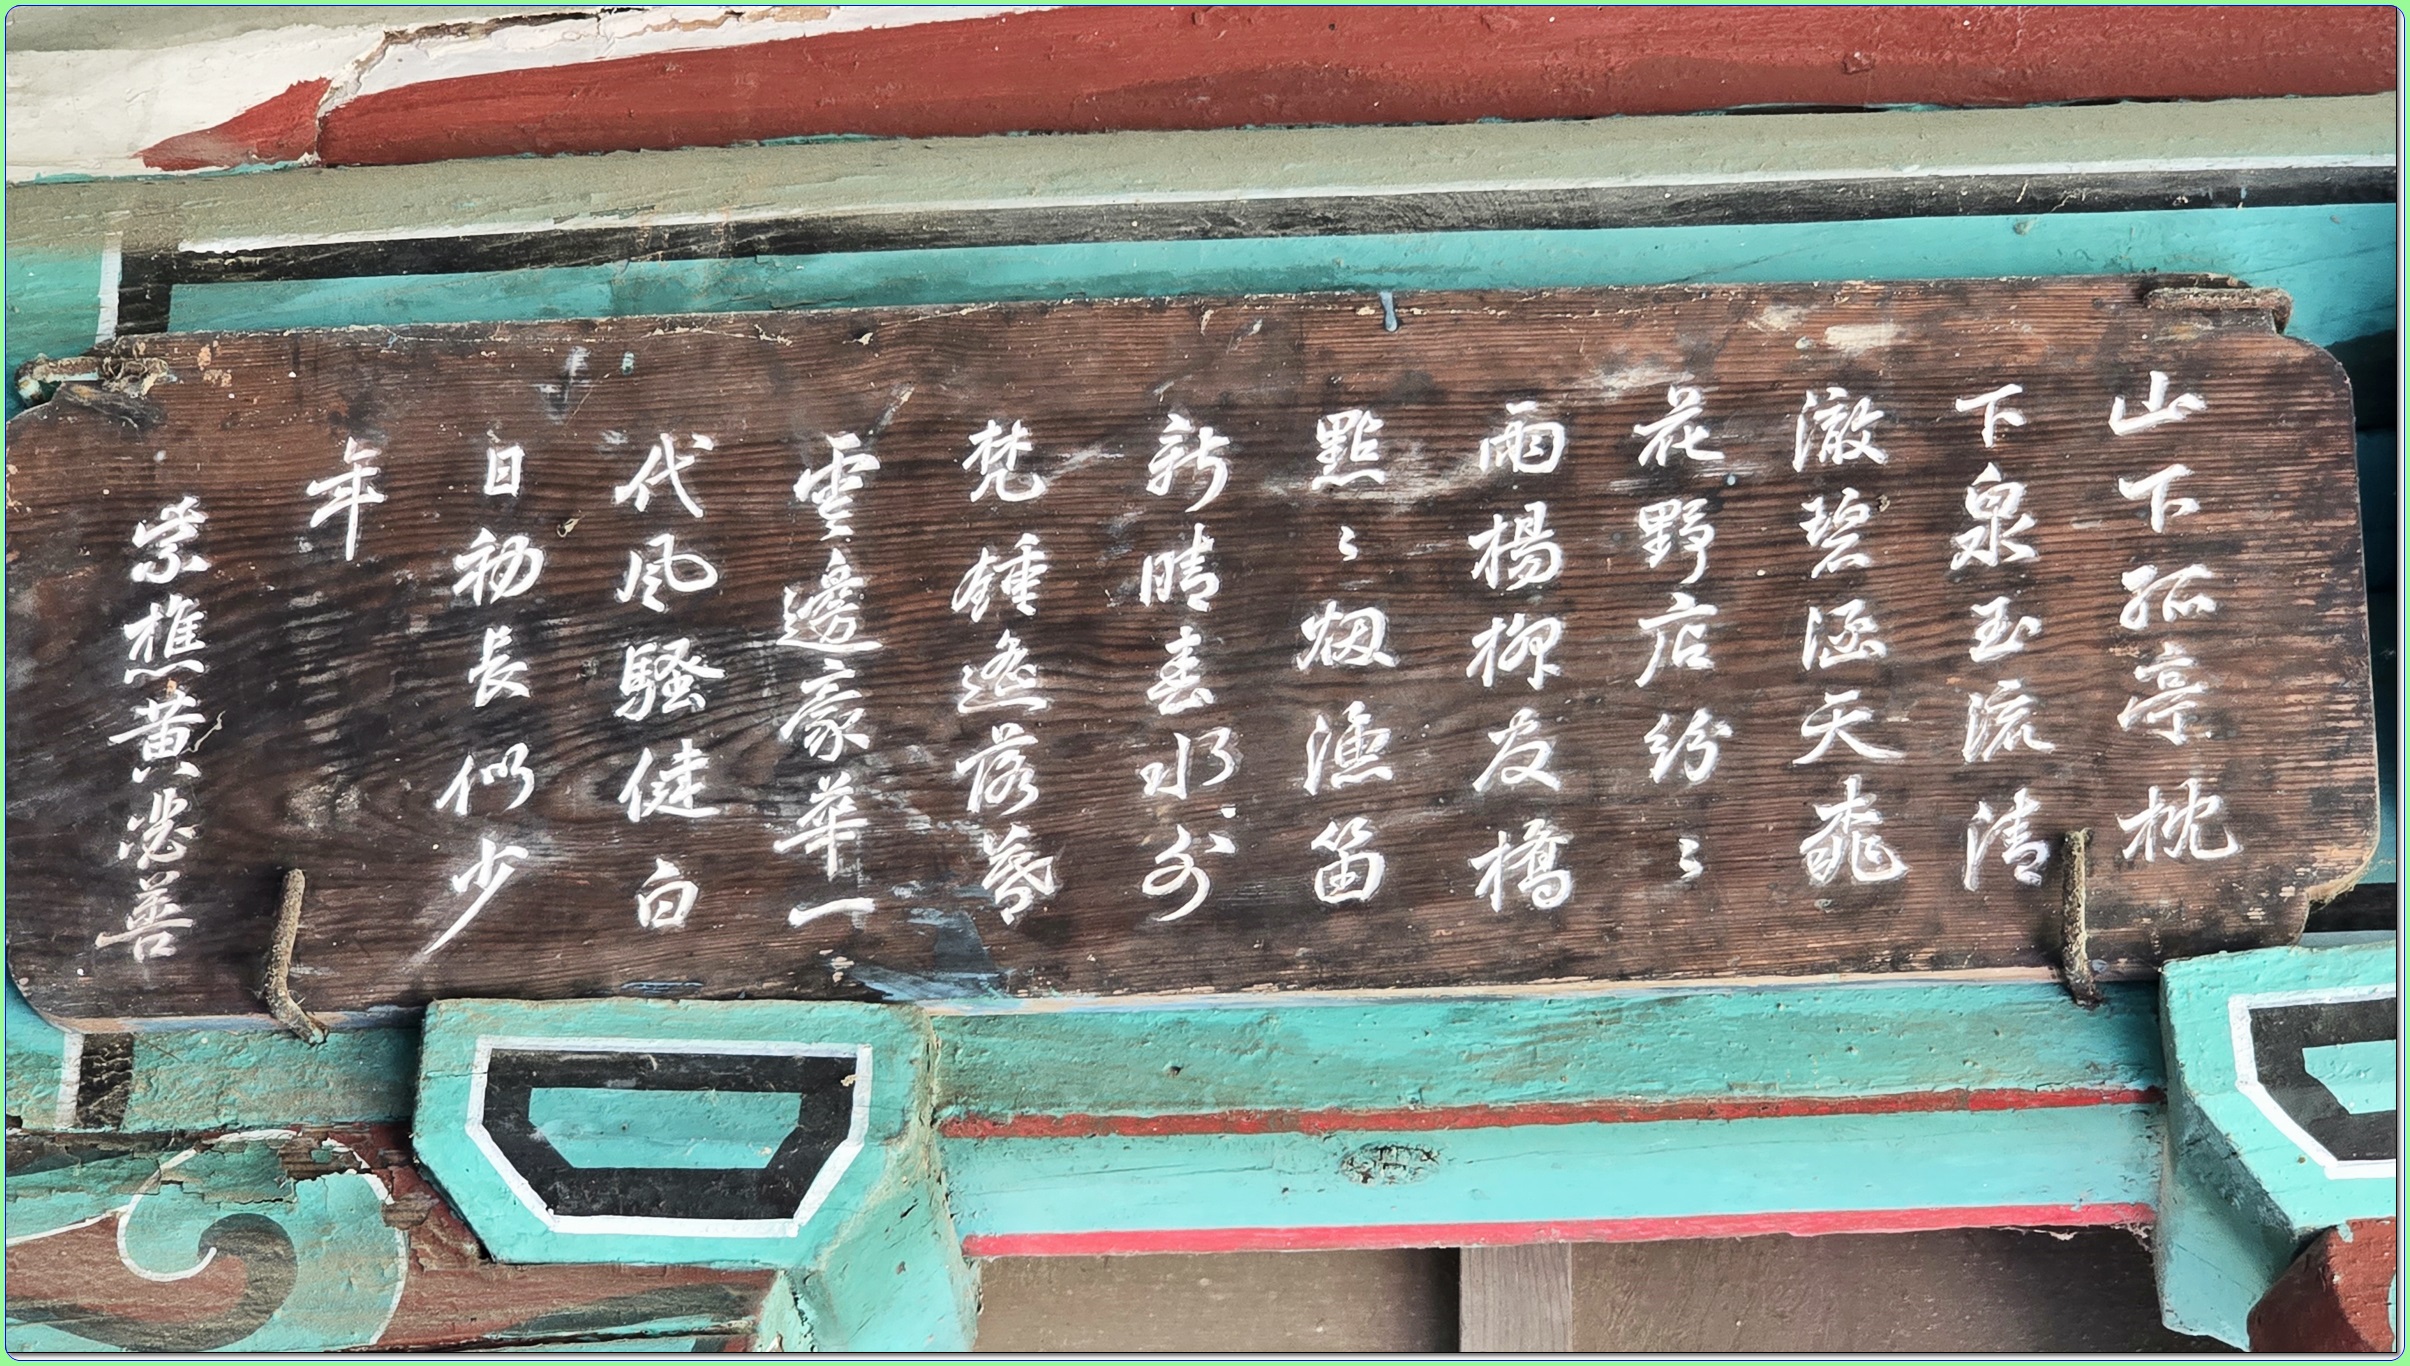 山下孤亭枕
下泉玉流清
澈碧涵天桃
花野店紛〻
雨楊柳友橋
點〻烟漁笛
新晴春水外
梵鍾遙落暮
雲邊豪華一
代風騷健白
日初長似少
年
紫樵黃苾善